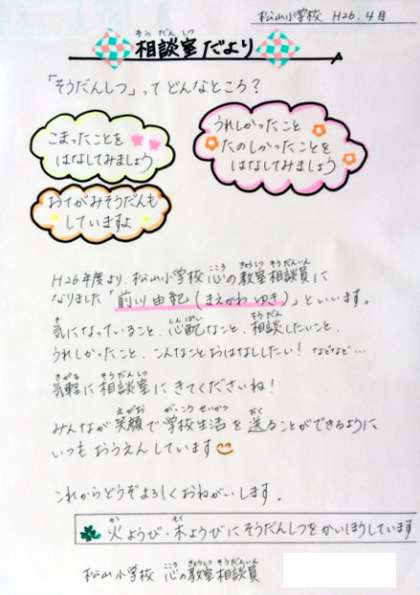 松山小学校 H26.4月
相談室だより
そうだんしつ
「そうだんしつ」ってどんなところ？
こまったことを
はなしてみましょう
うれしかったこと
たのしかったことを
はなしてみましょう
おてがみそうだんも
していますよ
こころ きょうしつ そうだんいん
H26年度より、松山小学校 心の教室相談員に
なりました「前川由紀（まえかわ ゆき）」といいます。
き しんぱい そうだん
気になっていること、心配なこと、相談したいこと、
うれしかったこと、こんなことおはなししたい！などなど…
きがる そうだんしつ
気軽に相談室にきてくださいね！
えがお がっこうせいかつ おく
みんなが笑顔で学校生活を送ることができるように
いつもおうえんしています
これからどうぞよろしくおねがいします。
か もく
火ようび・木ようびにそうだんしつをかいほうしています
こころ きょうしつ そうだんいん
松山小学校 心の教室相談員